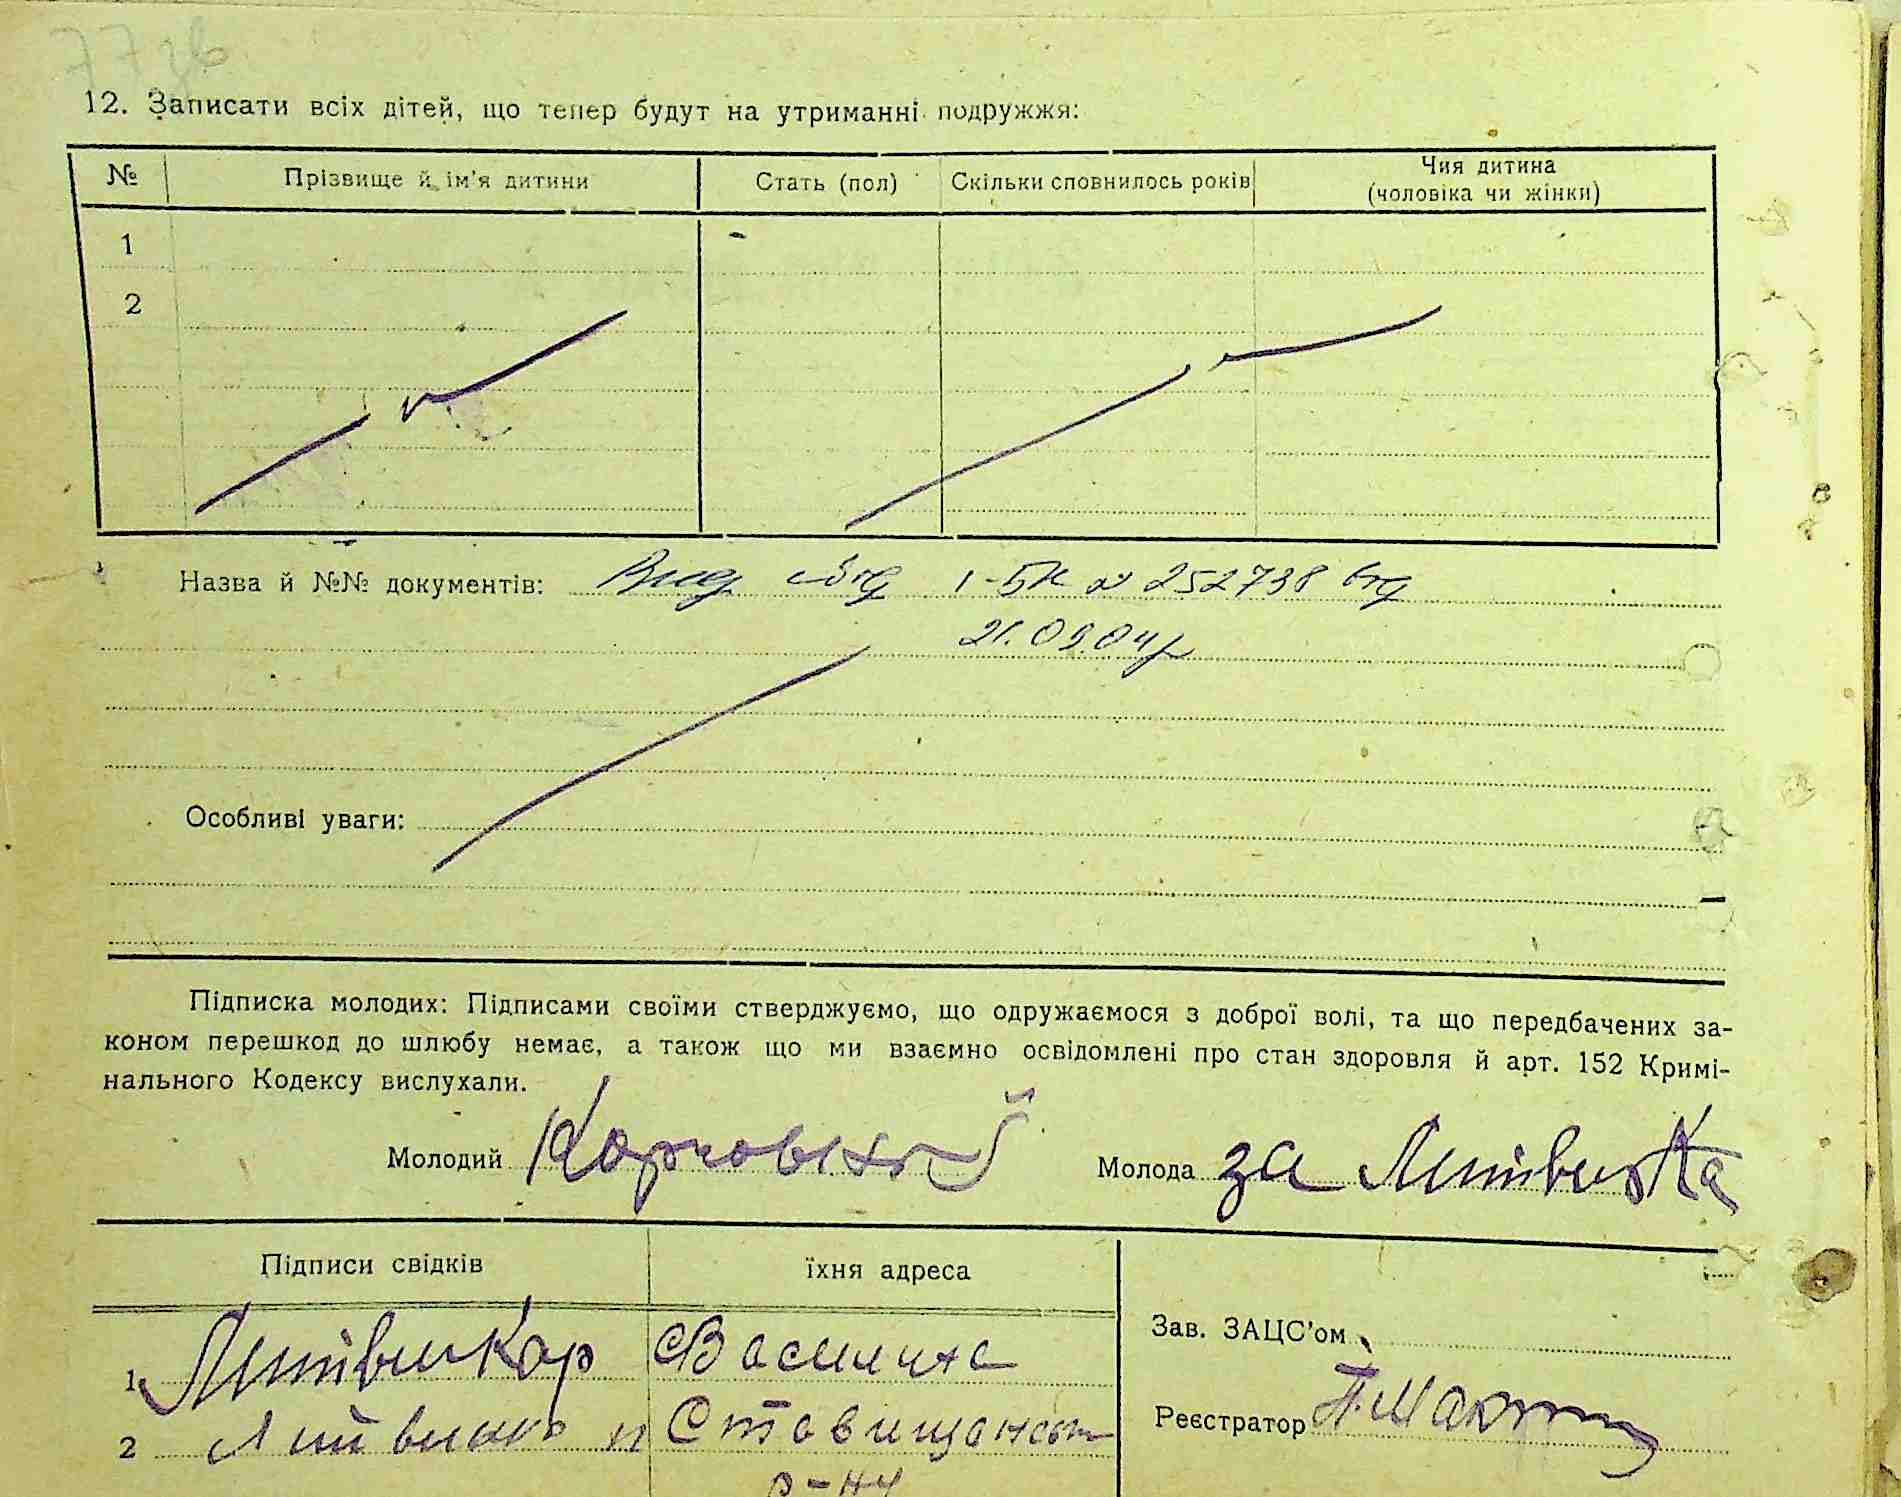 77зв
12. Записати всіх дітей, що тепер будут на утриманні подружжя:
№ Прізвище й ім'я дитини Стать (пол) Скільки сповнилось років Чия дитина (чоловіка чи жінки)
1
2
Назва й №№ документів: Вид. свід І-БК № 252738 від
21.09.04р
Особливі уваги:
Підписка молодих: Підписами своїми стверджуємо, що одружаємося з доброї волі, та що передбачених за-
коном перешкод до шлюбу немає, а також що ми взаємно освідомлені про стан здоровля й арт. 152 Кримі-
нального Кодексу вислухали.
Молодий Молода за Литвинка
Підписи свідків їхня адреса
Зав. ЗАЦС'ом
1. Литвин
2 Литвин
Реєстратор
р-ну